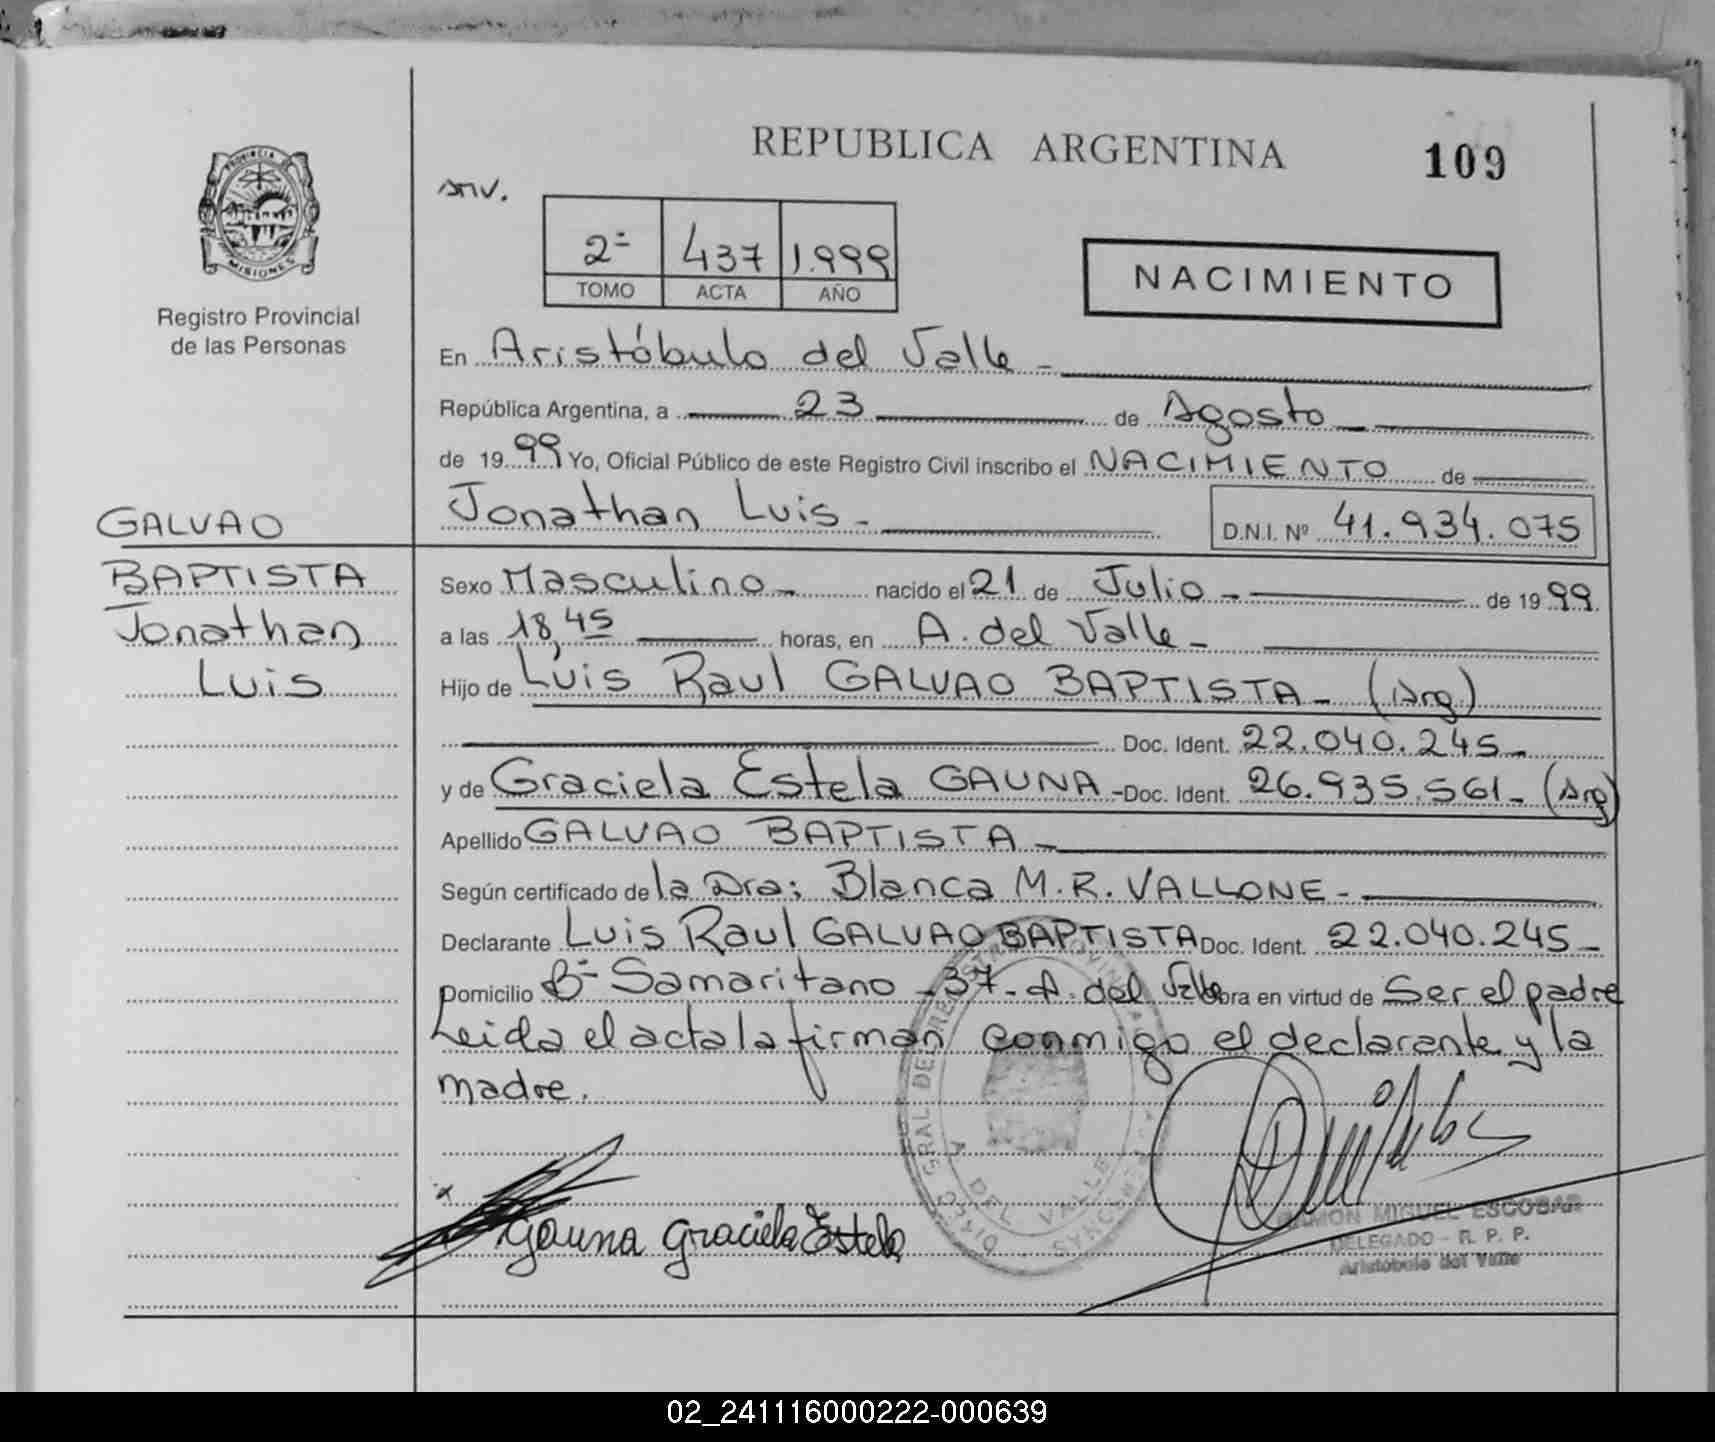 REPUBLICA ARGENTINA
109
PROVINCIA DE
MISIONES
Registro Provincial
de las Personas
2º 437 1.999
TOMO ACTA AÑO
NACIMIENTO
En Aristóbulo del Valle -
República Argentina, a 23 de Agosto
de 1999 Yo, Oficial Público de este Registro Civil inscribo el NACIMIENTO de
Jonathan Luis - D.N.I. Nº 41.934.075
GALVAO
BAPTISTA
Jonathan
Luis
Sexo Masculino - nacido el 21 de Julio - de 1999
a las 18,45 horas, en A. del Valle -
Hijo de Luis Raul GALVAO BAPTISTA - (Arg)
Doc. Ident. 22.040.245 -
y de Graciela Estela GAUNA - Doc. Ident. 26.935.561 - (Arg)
Apellido GALVAO BAPTISTA -
Según certificado de la Dra: Blanca M.R. VALLONE -
Declarante Luis Raul GALVAO BAPTISTA Doc. Ident. 22.040.245 -
Domicilio Bº Samaritano - 37 - A. del Valle obra en virtud de Ser el padre
Leida el acta la firman conmigo el declarante y la
madre.
Gauna Graciela Estela
A. DEL VALLE
RAMON MIGUEL ESCOBAR
DELEGADO - R. P. P.
Aristóbulo del Valle
02_241116000222-000639